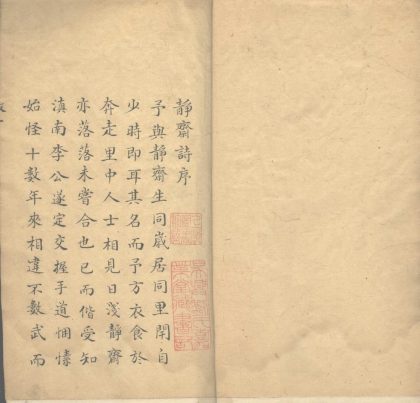 靜齋詩序
予與靜齋生同嵗居同里閈自
少時即耳其名而予方衣食於
奔走里中人士相見日淺靜齋
亦落落未嘗合也已而偕受知
滇南李公遂定交握手道悃愫
始怪十數年來相違不數武而